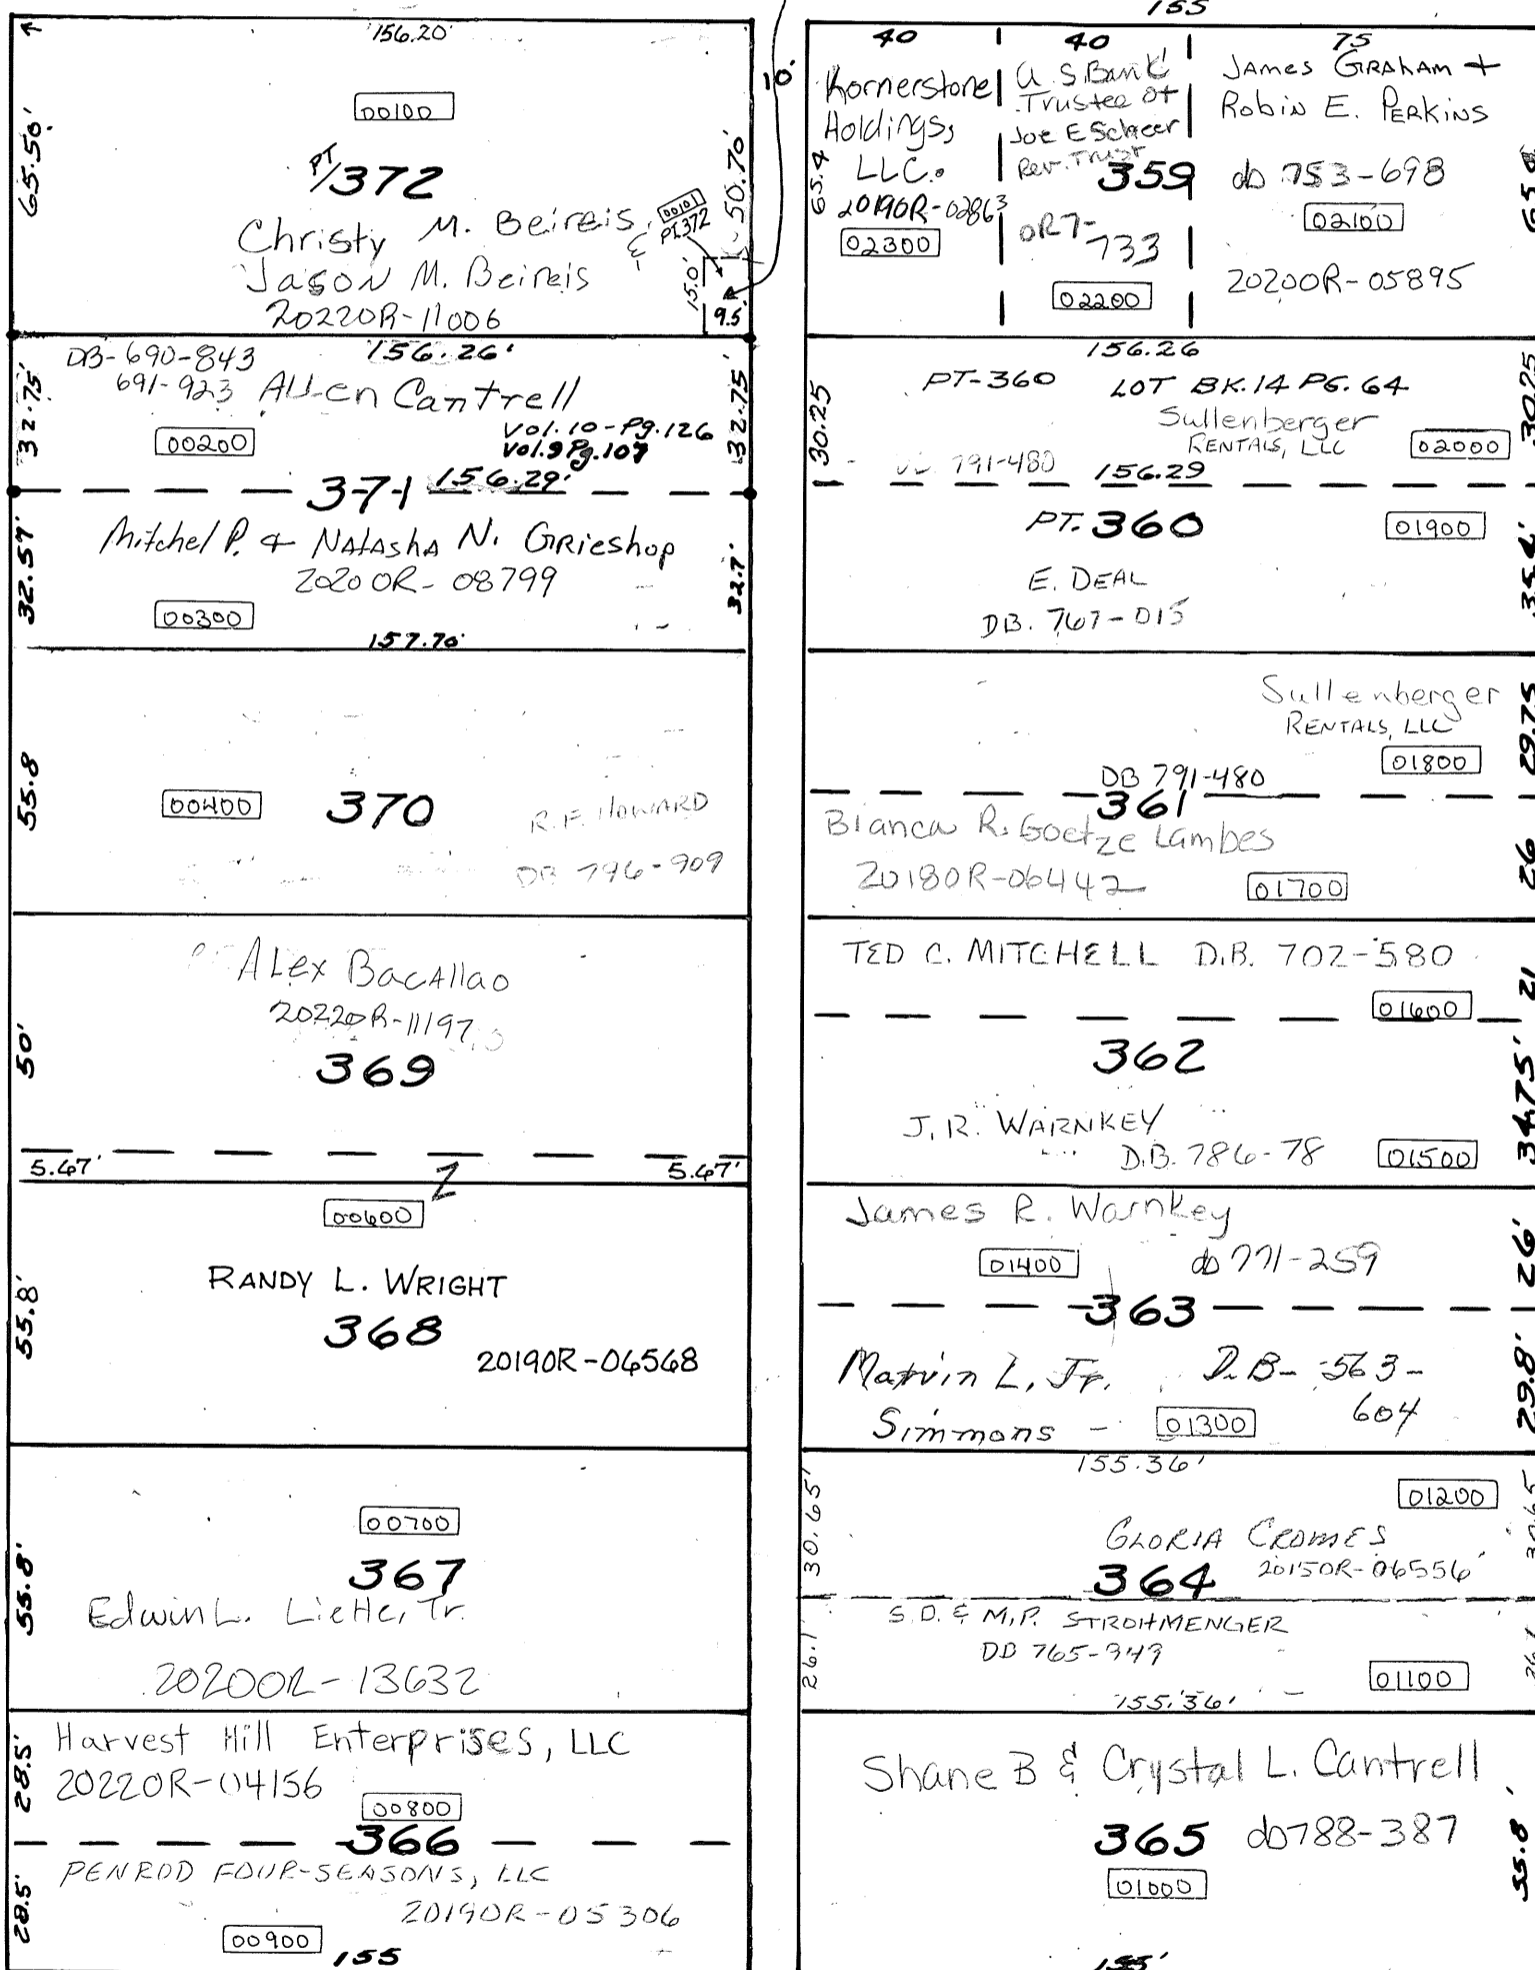 156.20'
65.50'
00100
PT/372
Christy M. Beireis &
Jason M. Beireis
20220R-11006
00101
PT.372
50.70'
15.0'
9.5
10'
156.26'
DB-690-843
691-923 Allen Cantrell
Vol.10-Pg.126
Vol.9 Pg.107
00200
32.75'
32.75'
371
156.29'
Mitchel P. & Natasha N. Grieshop
2020 OR-08799
00300
32.57'
32.7'
157.70'
55.8
00400
370
R.F. HOWARD
DB 796-909
Alex Bacallao
20220R-11197
369
50'
5.67'
Z
5.67'
00600
RANDY L. WRIGHT
368
20190R-06568
55.8'
00700
367
Edwin L. Liette, Tr.
20200R-13632
55.8'
Harvest Hill Enterprises, LLC
20220R-04156
00800
28.5'
366
PENROD FOUR-SEASONS, LLC
20190R-05306
00900
28.5'
155
155
40
40
75
Kornerstone
Holdings,
LLC.
20190R-02863
02300
65.4
U.S. Bank
Trustee of
Joe E Scheer
Rev. Trust
359
OR7-
733
02200
James Graham +
Robin E. Perkins
db 753-698
02100
20200R-05895
156.26
PT-360 LOT BK.14 PG.64
Sullenberger
RENTALS, LLC
02000
30.25
30.25
791-480
156.29
PT. 360
01900
E. DEAL
DB. 767-015
35.4'
Sullenberger
RENTALS, LLC
01800
29.75
DB 791-480
361
Bianca R. Goetze Lambes
20180R-06442
01700
26
TED C. MITCHELL D.B. 702-580
01600
21
362
J.R. WARNKEY
D.B. 786-78
01500
34.75'
James R. Warnkey
01400
db 771-259
26'
363
Marvin L. Jr.
Simmons -
D.B-563-
604
01300
29.8'
155.36'
01200
30.65'
30.65
GLORIA CROMES
364
20150R-06556
S.D. & M.P. STROHMENGER
DB 765-949
01100
26.1
26.1
155.36'
Shane B & Crystal L. Cantrell
365 db788-387
01000
55.8'
155'